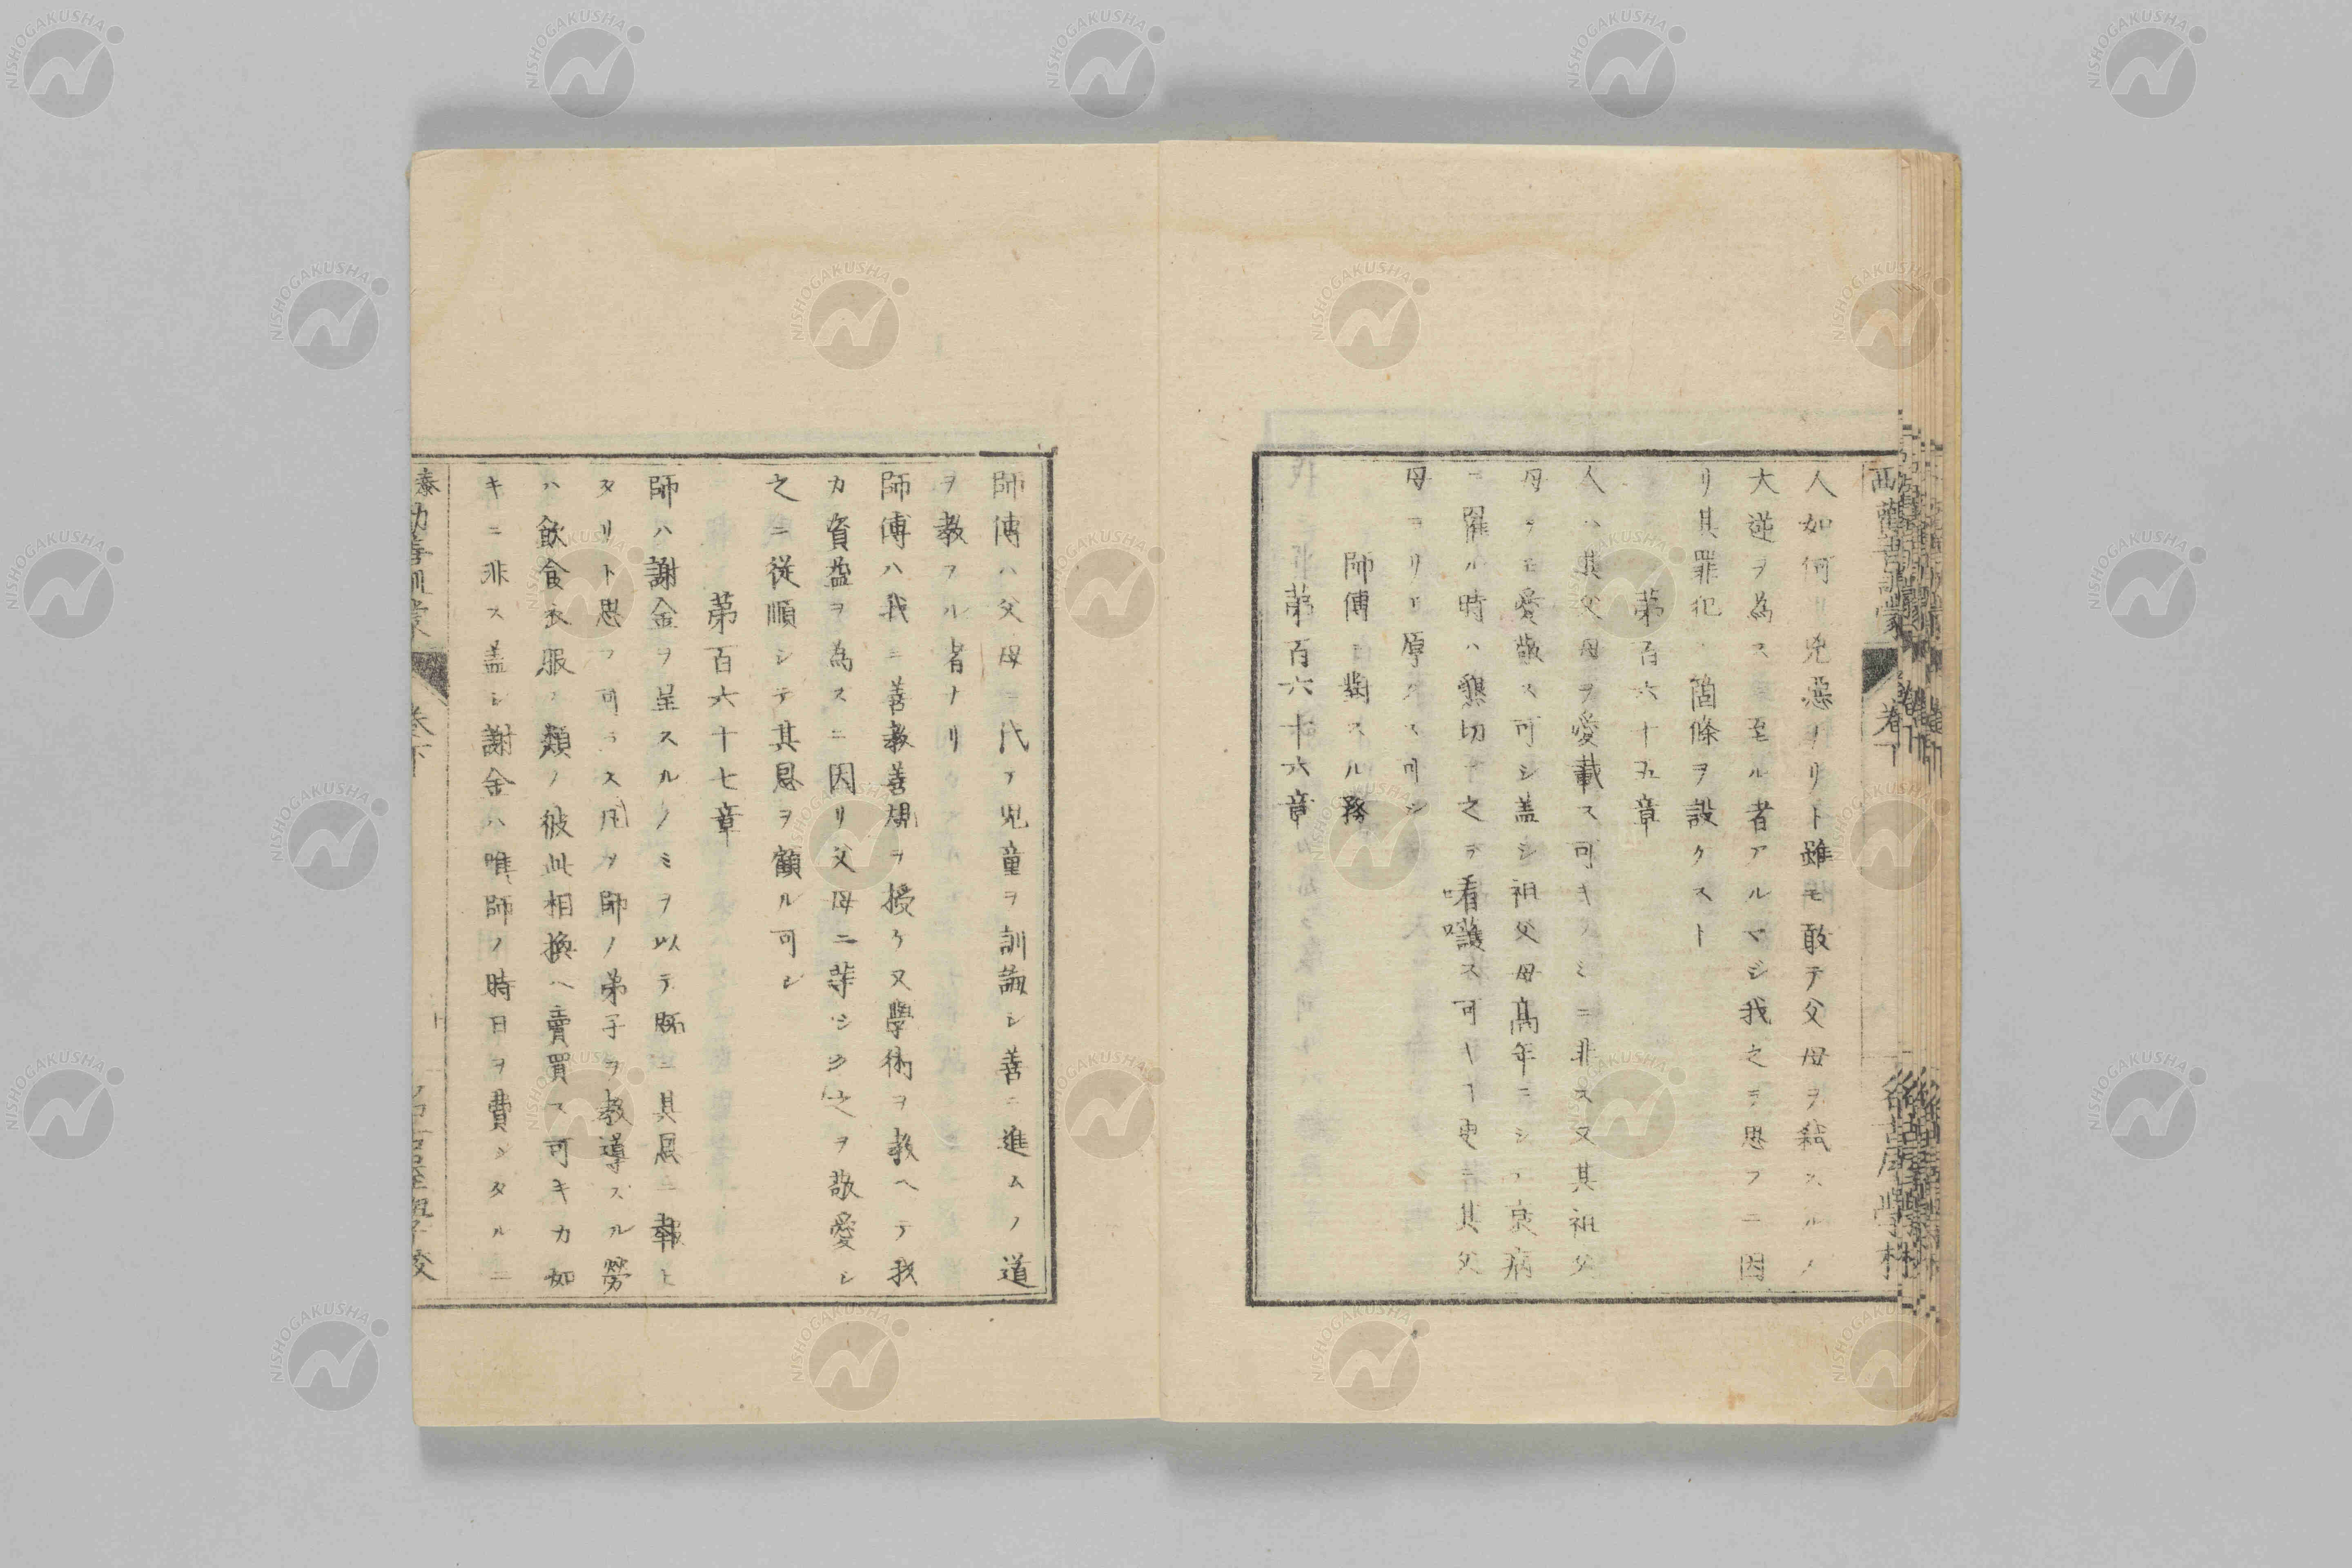 人如何ニ兇惡ナリト雖モ敢テ父母ヲ弑スルノ
大逆ヲ為スニ至ル者アルマジ我之ヲ思フニ因
リ其罪犯ノ箇條ヲ設ケスト
第百六十五章
人ハ其父母ヲ愛載ス可キノミニ非ス又其祖父
母ヲモ愛敬ス可シ蓋シ祖父母高年ニシテ衰病
ニ罹ル時ハ懇切ニ之ヲ看護ス可キ丁更ニ其父
母ヨリモ厚クス可シ
師傅ニ對スル務
第百六十六章
師傅ハ父母ニ代テ児童ヲ訓誨シ善ニ進ムノ道
ヲ教フル者ナリ
師傅ハ我ニ善教善規ヲ授ケ又學術ヲ教ヘテ我
カ資益ヲ為スニ因リ父母ニ等シク之ヲ敬愛シ
之ニ從順シテ其恩ヲ顧ル可シ
第百六十七章
師ハ謝金ヲ呈スルノミヲ以テ師ニ其恩ニ報ヒ
タリト思フ可ラス凡ソ師ノ弟子ヲ教導スル勞
ハ飲食衣服ノ類ノ彼此相換ヘ賣買ス可キカ如
キニ非ス蓋シ謝金ハ唯師ノ時日ヲ費シタルニ
泰 勸善訓蒙 卷下
NISHOGAKUSHA